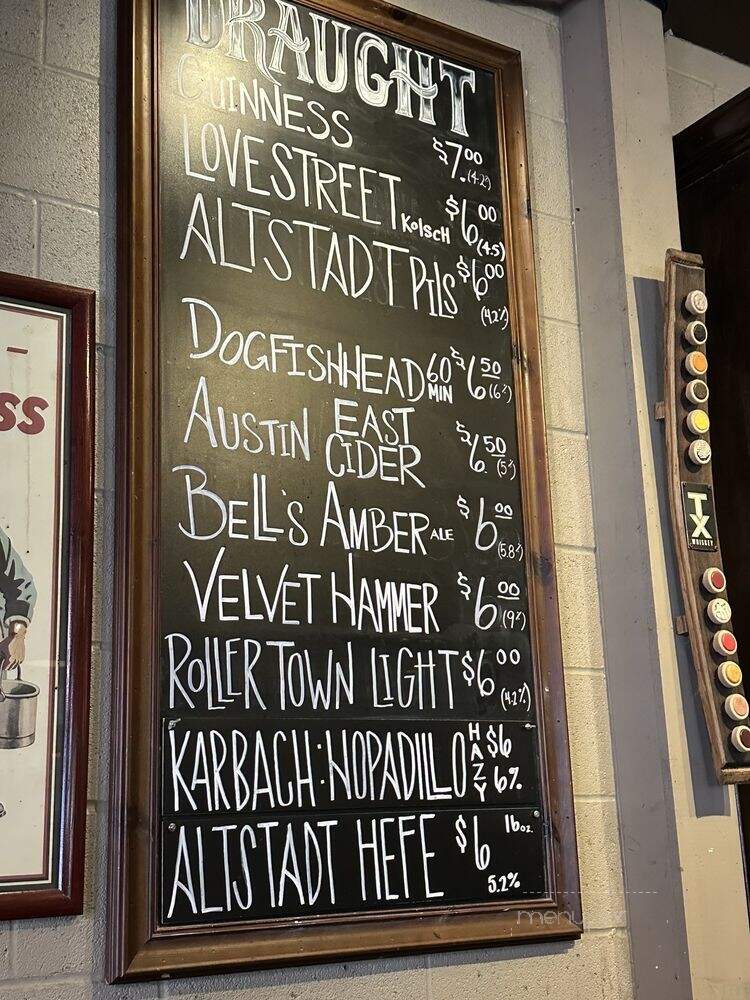 DRAUGHT
GUINNESS $7.00 (4.2%)
LOVESTREET Kolsch $6.00 (4.5)
ALTSTADT PILS $6.00 (4.2%)
DOGFISHHEAD 60 MIN $6.50 (6%)
AUSTIN EAST CIDER $6.50 (5%)
BELL'S AMBER ALE $6.00 (5.8%)
VELVET HAMMER $6.00 (9%)
ROLLERTOWN LIGHT $6.00 (4.2%)
KARBACH: HOPADILLO HAZY $6 6%
ALTSTADT HEFE $6 16oz. 5.2%
SS
TX
WHISKEY
menu